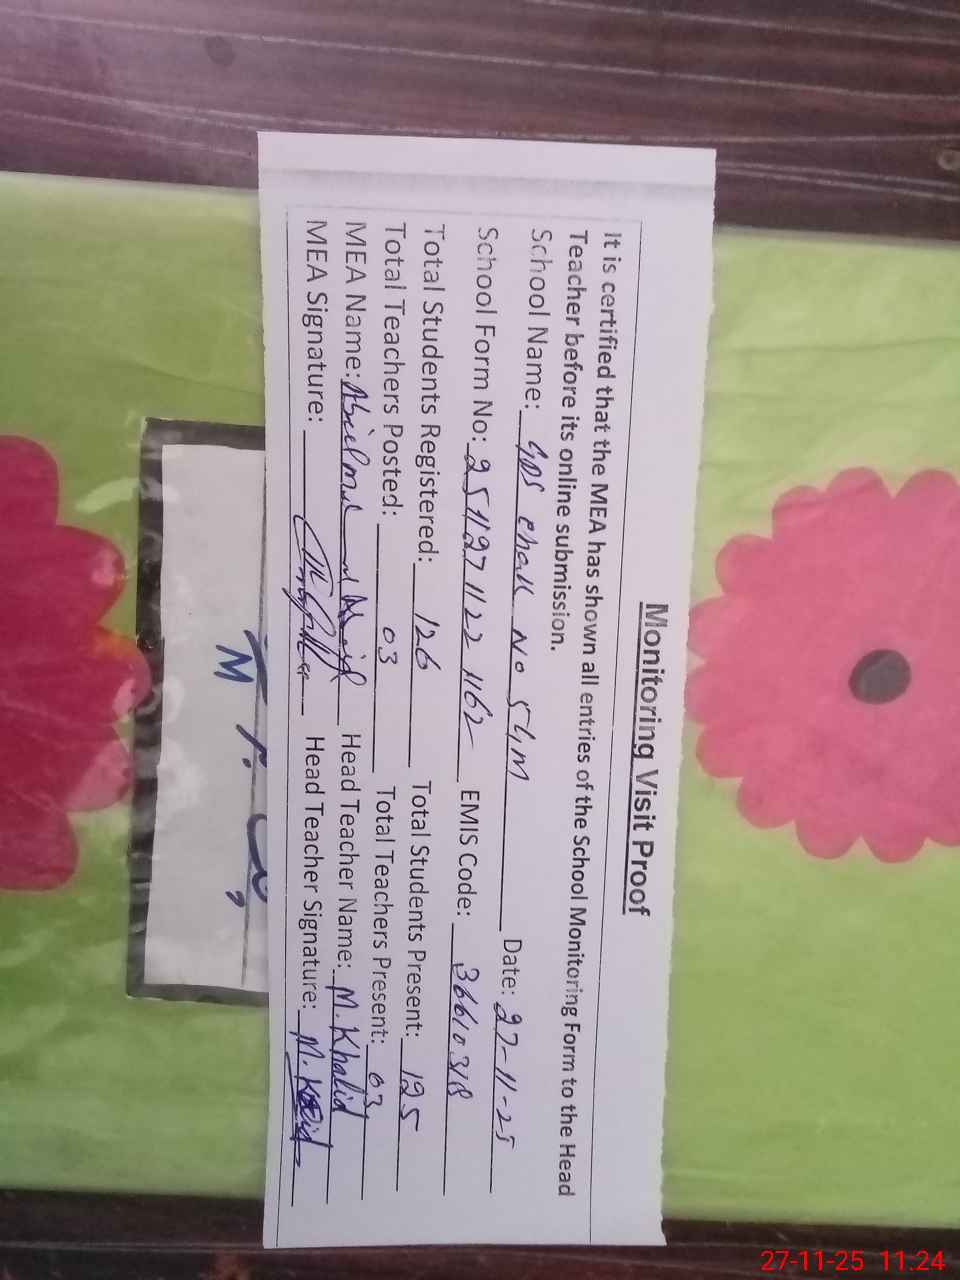 Monitoring Visit Proof
It is certified that the MEA has shown all entries of the School Monitoring Form to the Head
Teacher before its online submission.
School Name: GPS Chak No 54M Date: 27-11-25
School Form No: 251127 1122 1162 EMIS Code: 36610318
Total Students Registered: 126 Total Students Present: 125
Total Teachers Posted: 03 Total Teachers Present: 03
MEA Name: Head Teacher Name: M. Khalid
MEA Signature: Head Teacher Signature: M. Khalid
M
27-11-25 11:24